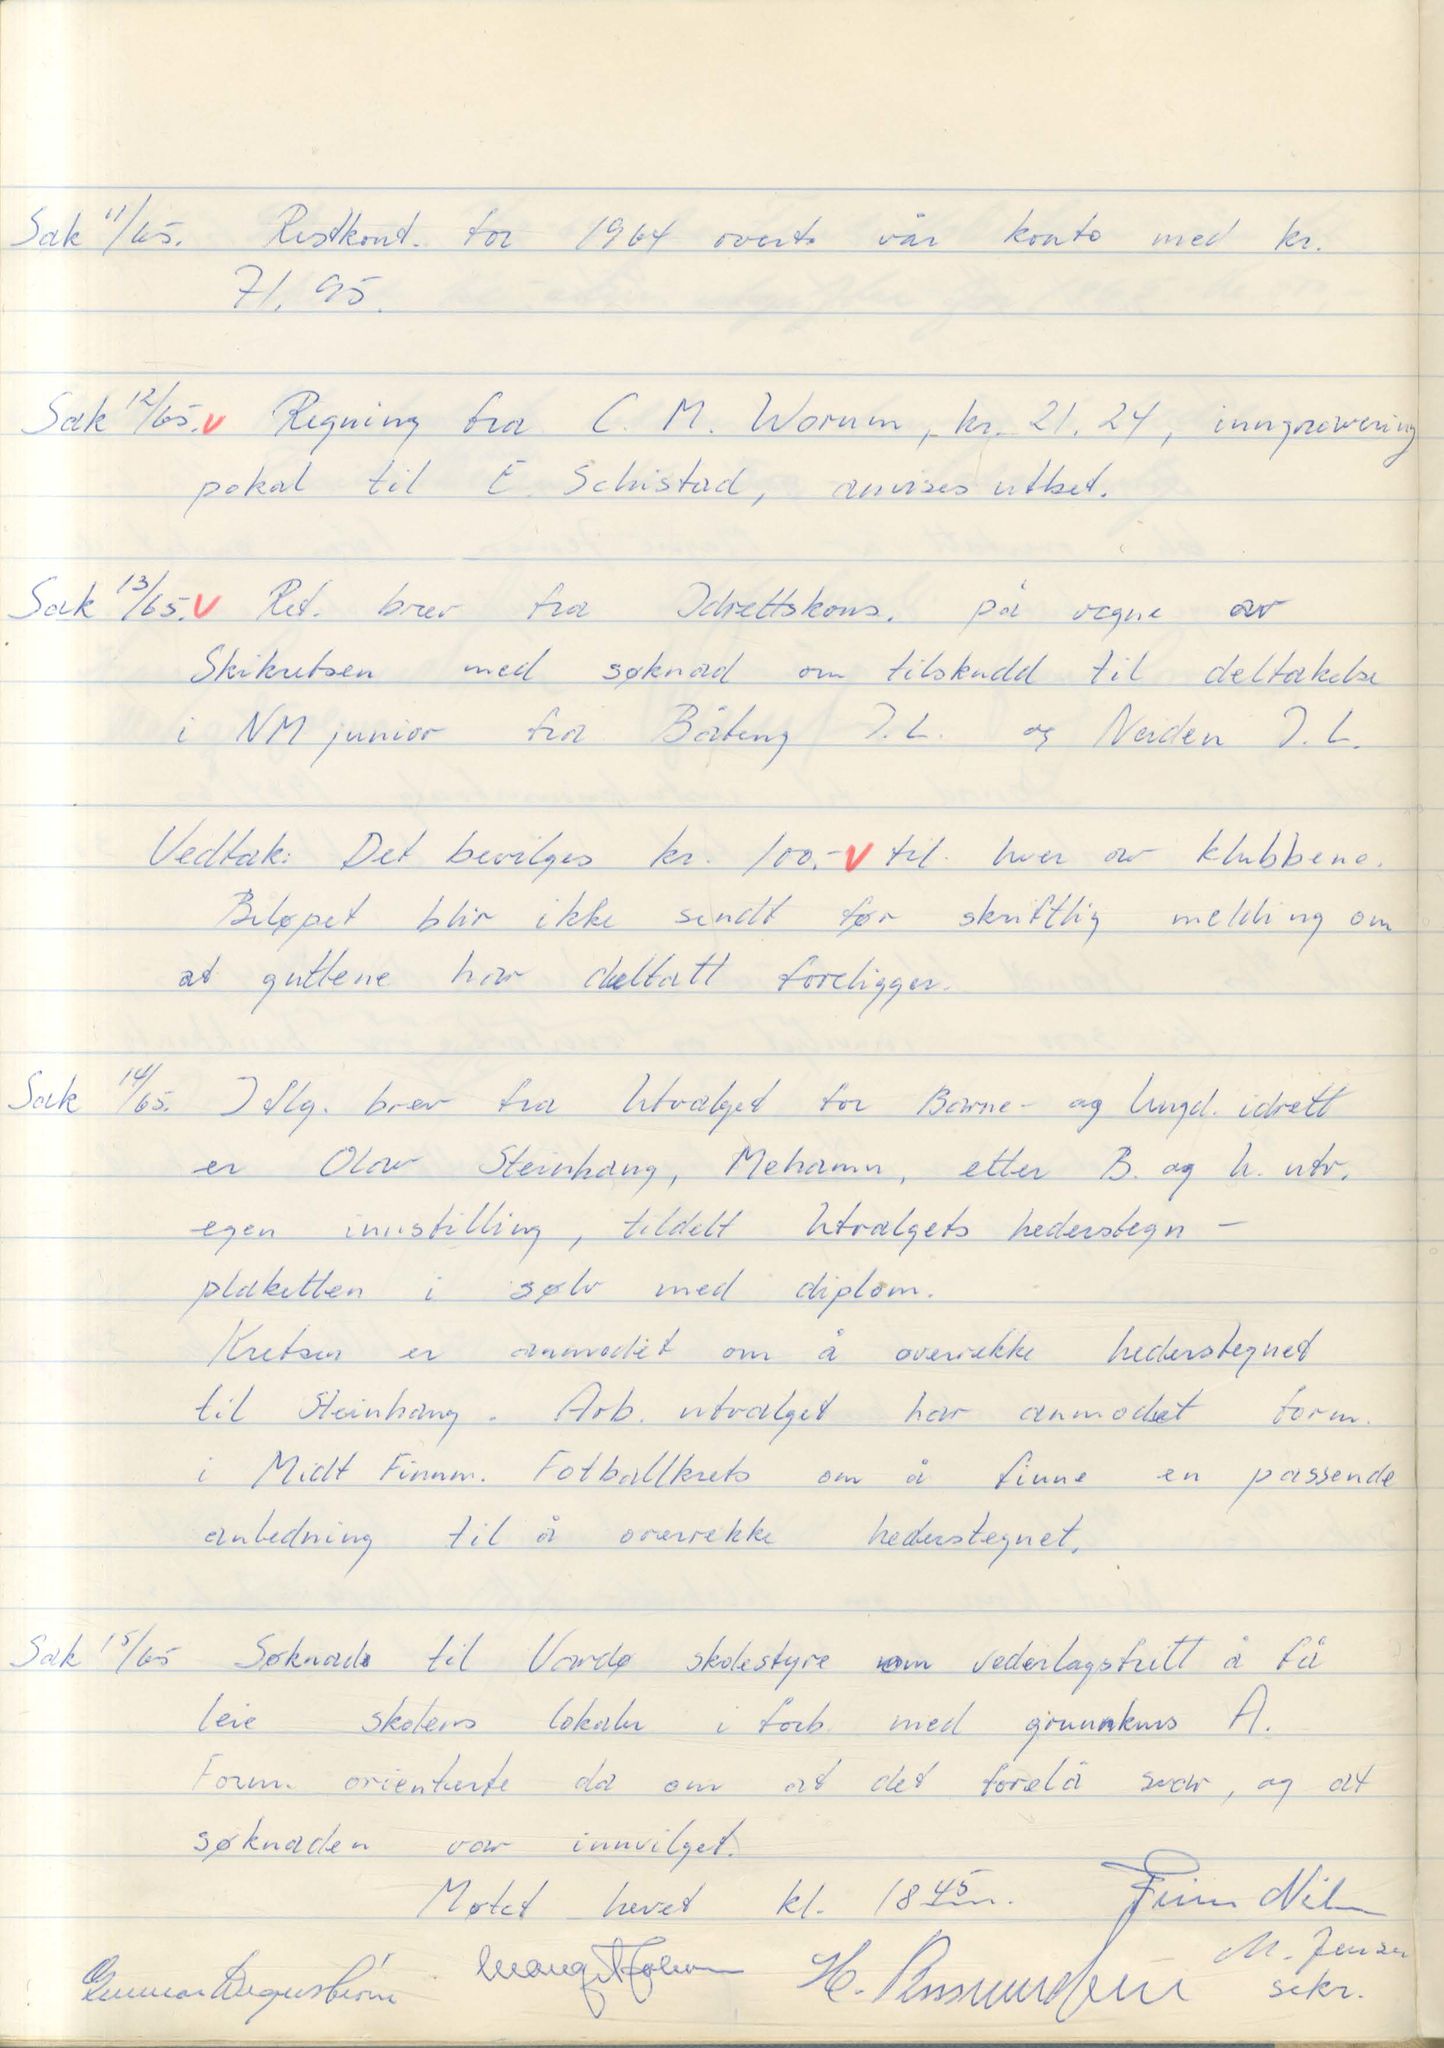 Sak 11/65. Restkont. for 1964 overts vår konto med kr.
71.95.
Sak 12/65. v Regning fra C. M. Worum, kr. 21.24, inngravering
pokal til E. Schistad, anvises utbet.
Sak 13/65. v Ref. brev fra Idrettskons. på vegne av
Skikretsen med søknad om tilskudd til deltakelse
i NM junior fra Båteng I.L. og Neiden I.L.
Vedtak: Det bevilges kr. 100.- v til hver av klubbene.
Beløpet blir ikke sendt før skriftlig melding om
at guttene har deltatt foreligger.
Sak 14/65. I flg. brev fra Utvalget for Barne- og Ungd. idrett
er Olav Steinhaug, Mehamn, etter B. og U. utv.
egen innstilling, tildelt Utvalgets hederstegn -
plaketten i sølv med diplom.
Kretsen er anmodet om å overrekke hederstegnet
til Steinhaug. Arb. utvalget har anmodet form.
i Midt Finnm. Fotballkrets om å finne en passende
anledning til å overrekke hederstegnet.
Sak 15/65 Søknad til Vardø skolestyre om vederlagsfritt å få
leie skolens lokaler i forb. med grunnkurs A.
Form. orienterte da om at det forelå svar, og at
søknaden var innvilget.
Møtet hevet kl. 18 45
Finn
M. Jensen
Gunnar H.
sekr.